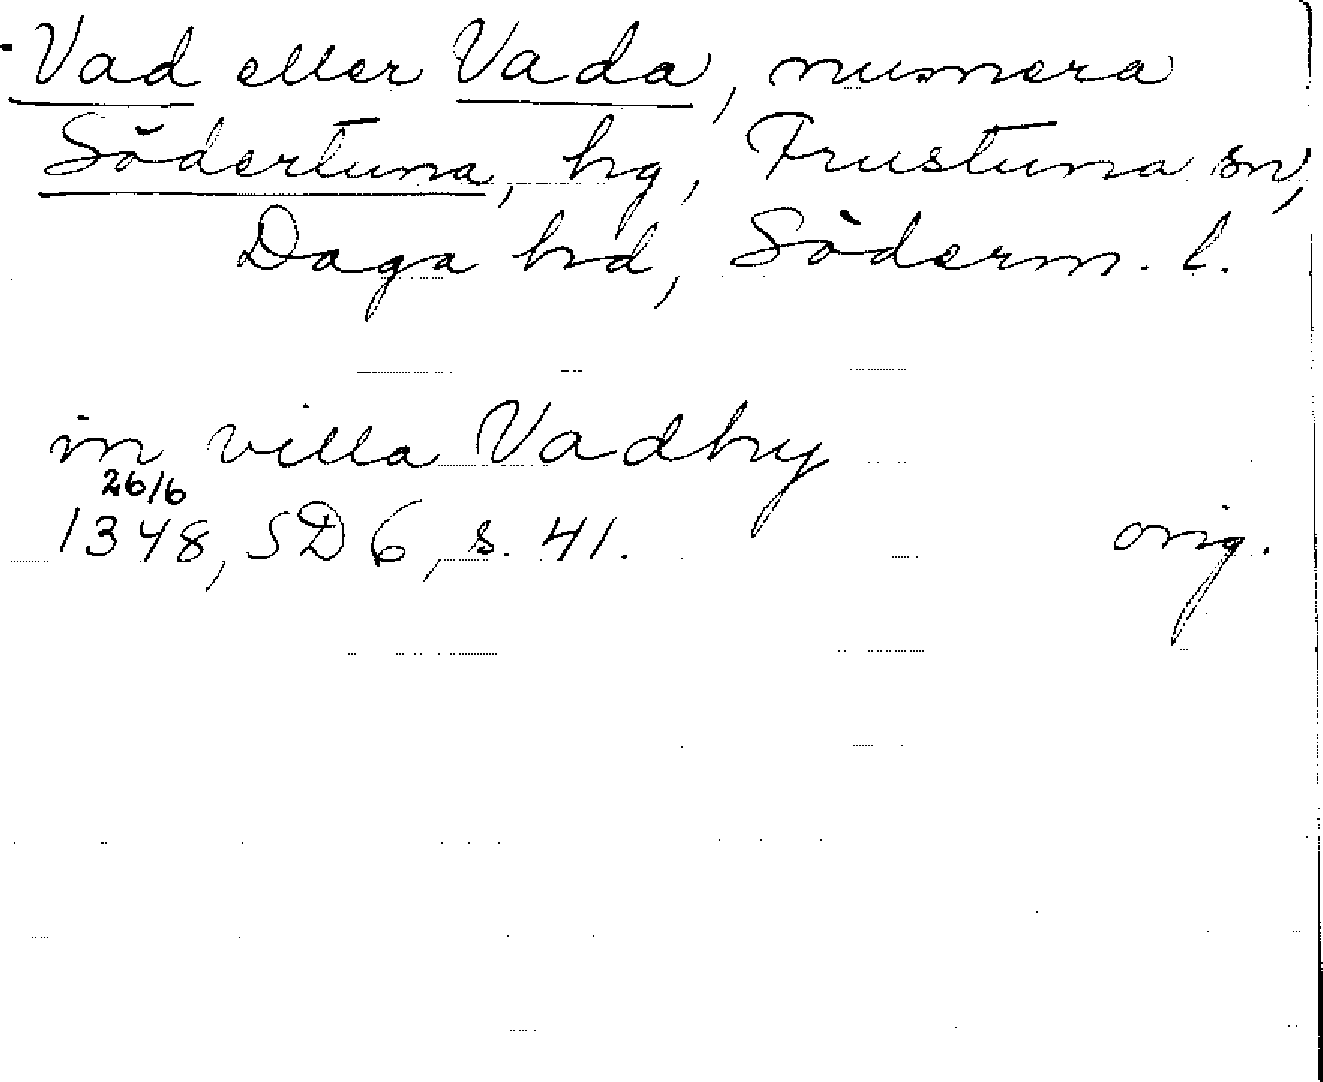 Vad eller Vada, numera
Södertuna, hg, Frustuna sn,
Daga hd, Söderm. l.
in villa Vadhy
26/6
1348, SD 6, s. 41. orig.